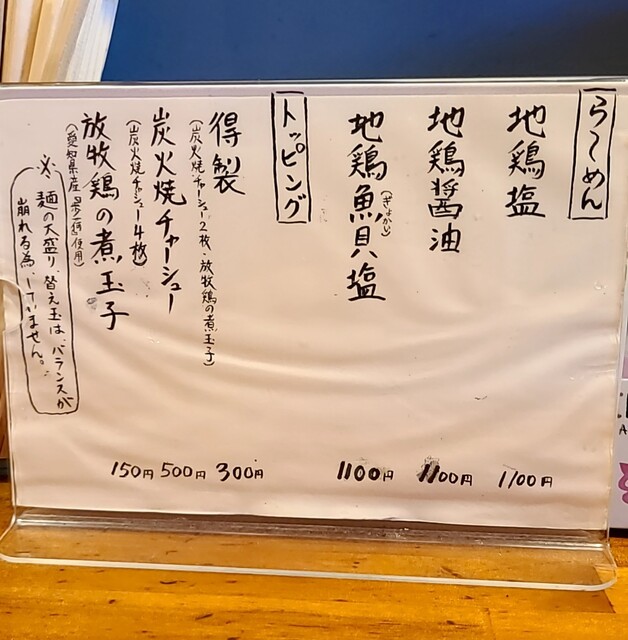 らーめん
地鶏塩 1100円
地鶏醤油 1100円
地鶏魚貝塩 1100円
(ぎょかい)
トッピング
得製 300円
(炭火焼チャーシュー2枚・放牧鶏の煮玉子)
炭火焼チャーシュー 500円
(炭火焼チャシュー4枚)
放牧鶏の煮玉子 150円
(愛知県産 使用)
※麺の大盛り、替え玉は、バランスが
崩れる為、していません。